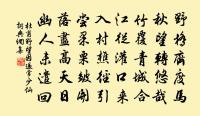 野橋齊度馬
秋望轉悠哉
竹覆青城合
江從灌口來
入村樵徑引
嘗果栗皺開
落盡高天日
幽人未遣回
杜甫野望因過常少仙
詞典網集